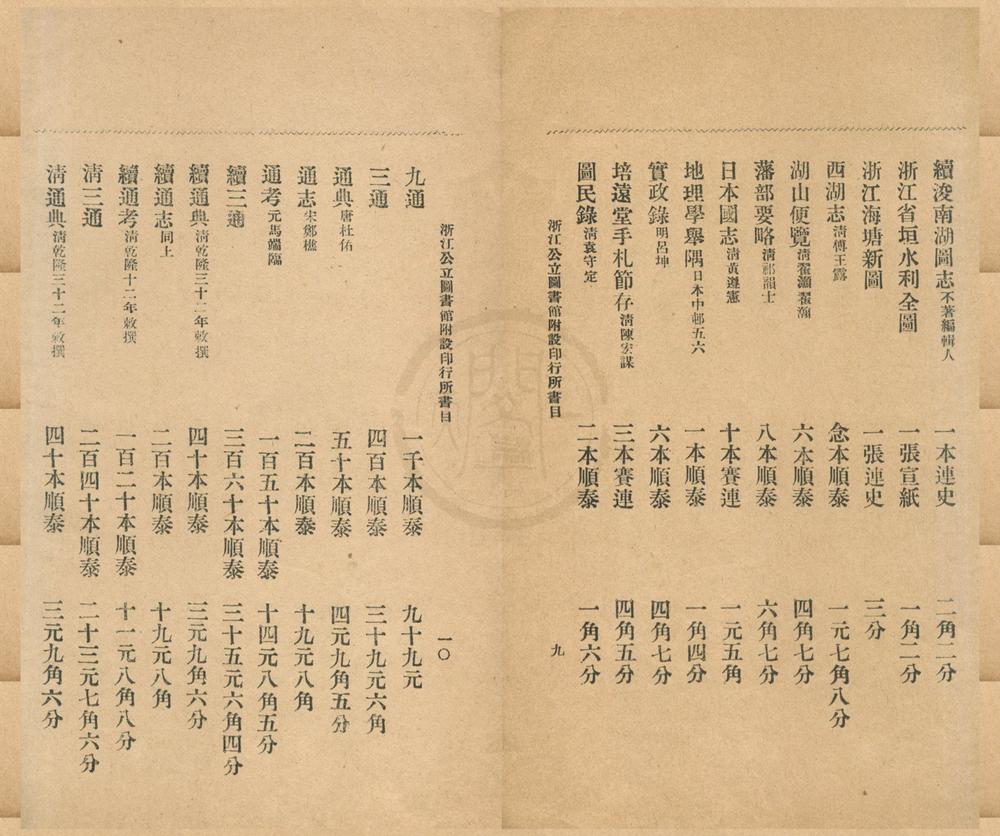 續浚南湖圖志不著編輯人 一本連史 二角二分
浙江省垣水利全圖 一張宣紙 一角二分
浙江海塘新圖 一張連史 三分
西湖志清傅王露 念本順泰 一元七角八分
湖山便覽清翟灝翟瀚 六本順泰 四角七分
藩部要略清祁韻士 八本順泰 六角七分
日本國志清黃遵憲 十本賽連 一元五角
地理學舉隅日本中邨五六 一本順泰 一角四分
實政錄明呂坤 六本順泰 四角七分
培遠堂手札節存清陳宏謀 三本賽連 四角五分
圖民錄清袁守定 二本順泰 一角六分
浙江公立圖書館附設印行所書目 九
浙江公立圖書館附設印行所書目 一〇
九通 一千本順泰 九十九元
三通 四百本順泰 三十九元六角
通典唐杜佑 五十本順泰 四元九角五分
通志宋鄭樵 二百本順泰 十九元八角
通考元馬端臨 一百五十本順泰 十四元八角五分
續三通 三百六十本順泰 三十五元六角四分
續通典清乾隆三十二年敕撰 四十本順泰 三元九角六分
續通志同上 二百本順泰 十九元八角
續通考清乾隆十二年敕撰 一百二十本順泰 十一元八角八分
清三通 二百四十本順泰 二十三元七角六分
清通典清乾隆三十二年敕撰 四十本順泰 三元九角六分